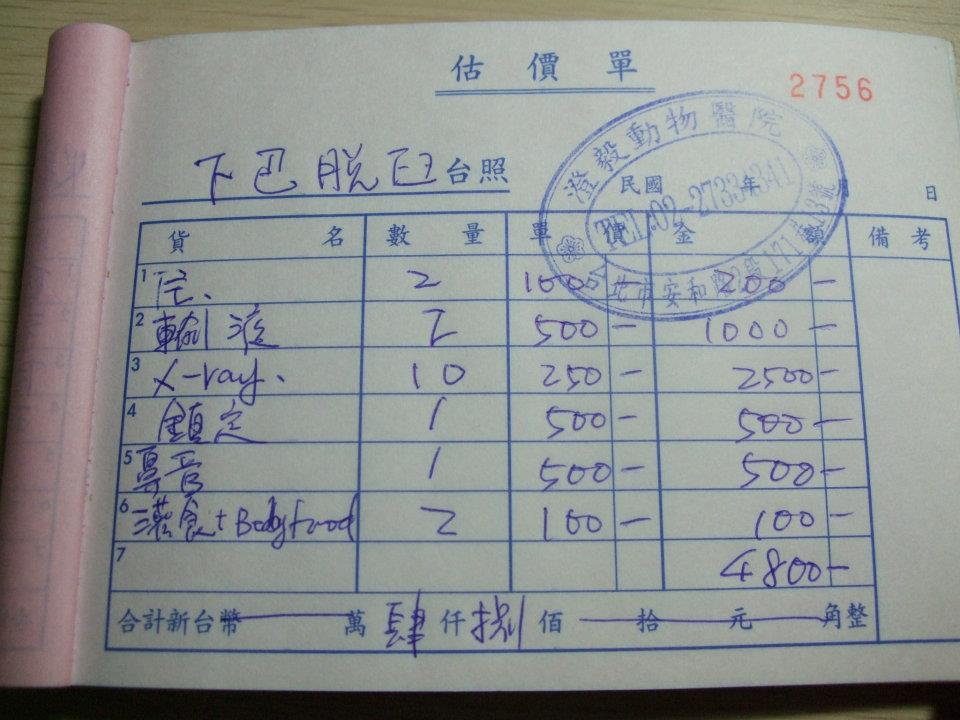 估價單
2756
澄毅動物醫院
下巴脱臼台照 民國 年 月 日
TEL:02-2733-
北市安和路2段171巷13號
貨名 數量 單價 金額 備考
1 住、 2 100- 200-
2 輸液 2 500- 1000-
3 X-ray. 10 250- 2500-
4 鎮定 1 500- 500-
5 1 500- 500-
6 灌食+Bodyfood 2 100- 100-
7 4800-
合計新台幣 萬肆仟捌佰 拾 元 角整